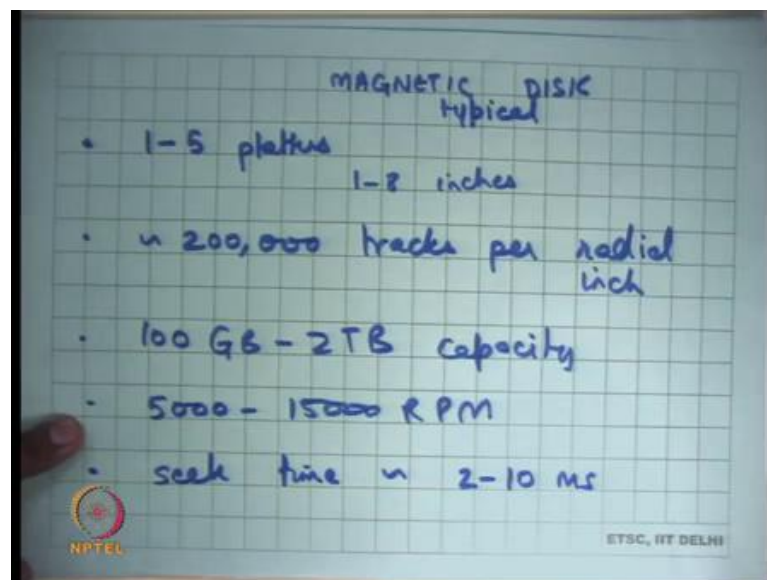 MAGNETIC DISK
typical
• 1-5 platters
1-8 inches
• ~ 200,000 tracks per radial
inch
• 100 GB - 2TB capacity
• 5000 - 15000 RPM
• seek time ~ 2-10 ms
NPTEL
ETSC, IIT DELHI